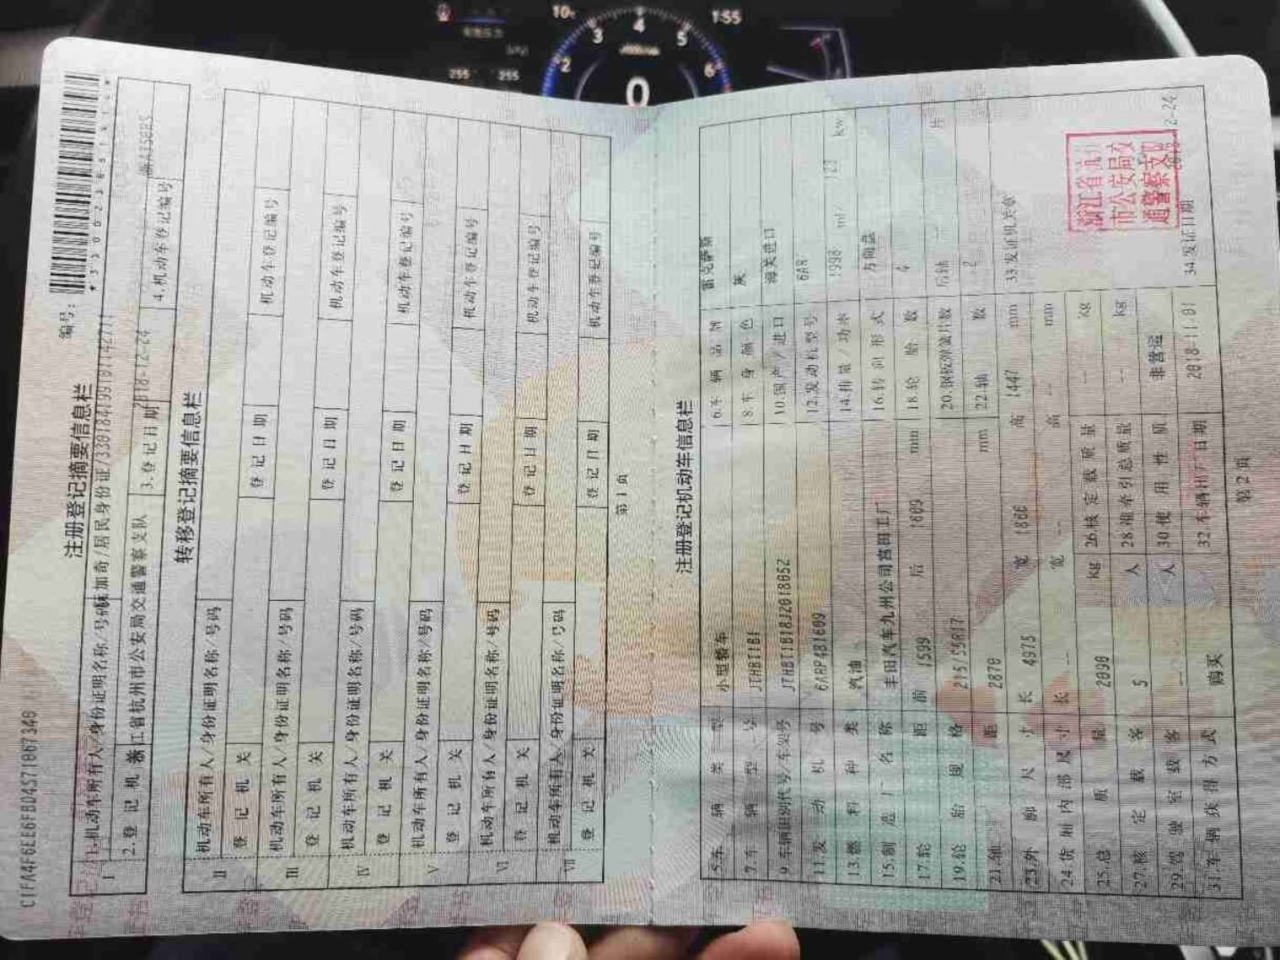 编号：
注册登记摘要信息栏
I
1.机动车所有人/身份证明名称/号码
加奇/居民身份证/330184199107142711
2.登记机关
浙江省杭州市公安局交通警察支队
3.登记日期
2018-12-24
4.机动车登记编号
转移登记摘要信息栏
II
机动车所有人/身份证明名称/号码
登记机关
登记日期
机动车登记编号
III
机动车所有人/身份证明名称/号码
登记机关
登记日期
机动车登记编号
IV
机动车所有人/身份证明名称/号码
登记机关
登记日期
机动车登记编号
V
机动车所有人/身份证明名称/号码
登记机关
登记日期
机动车登记编号
VI
机动车所有人/身份证明名称/号码
登记机关
登记日期
机动车登记编号
VII
机动车所有人/身份证明名称/号码
登记机关
登记日期
机动车登记编号
第1页
注册登记机动车信息栏
5.车辆类型 小型轿车
6.车辆品牌 雷克萨斯
7.车辆型号
8.车身颜色 灰
9.车辆识别代号/车架号 JTHB11B18J2018052
10.国产/进口 海关进口
11.发动机号
12.发动机型号 6AR
13.燃料种类 汽油
14.排量/功率 1998 ml/ 123 kw
15.制造厂名称 丰田汽车九州公司宫田工厂
16.转向形式 方向盘
17.轮距 前 1599 后 1609 mm
18.轮胎数 4
19.轮胎规格 215/55R17
20.钢板弹簧片数 后轴 -- 片
21.轴距 2870 mm
22.轴数 2
23.外廓尺寸 长 4975 宽 1866 高 1447 mm
33.发证机关章
24.货厢内部尺寸 长 -- 宽 -- 高 -- mm
25.总质量 2090 kg
26.核定载质量 -- kg
27.核定载客 5 人
28.准牵引总质量 -- kg
29.驾驶室载客 -- 人
30.使用性质 非营运
31.车辆获得方式 购买
32.车辆出厂日期 2018-11-01
34.发证日期
浙江省杭州
市公安局交
通警察支队
第2页
10
1:55
255
255
2
3
4
5
6
0